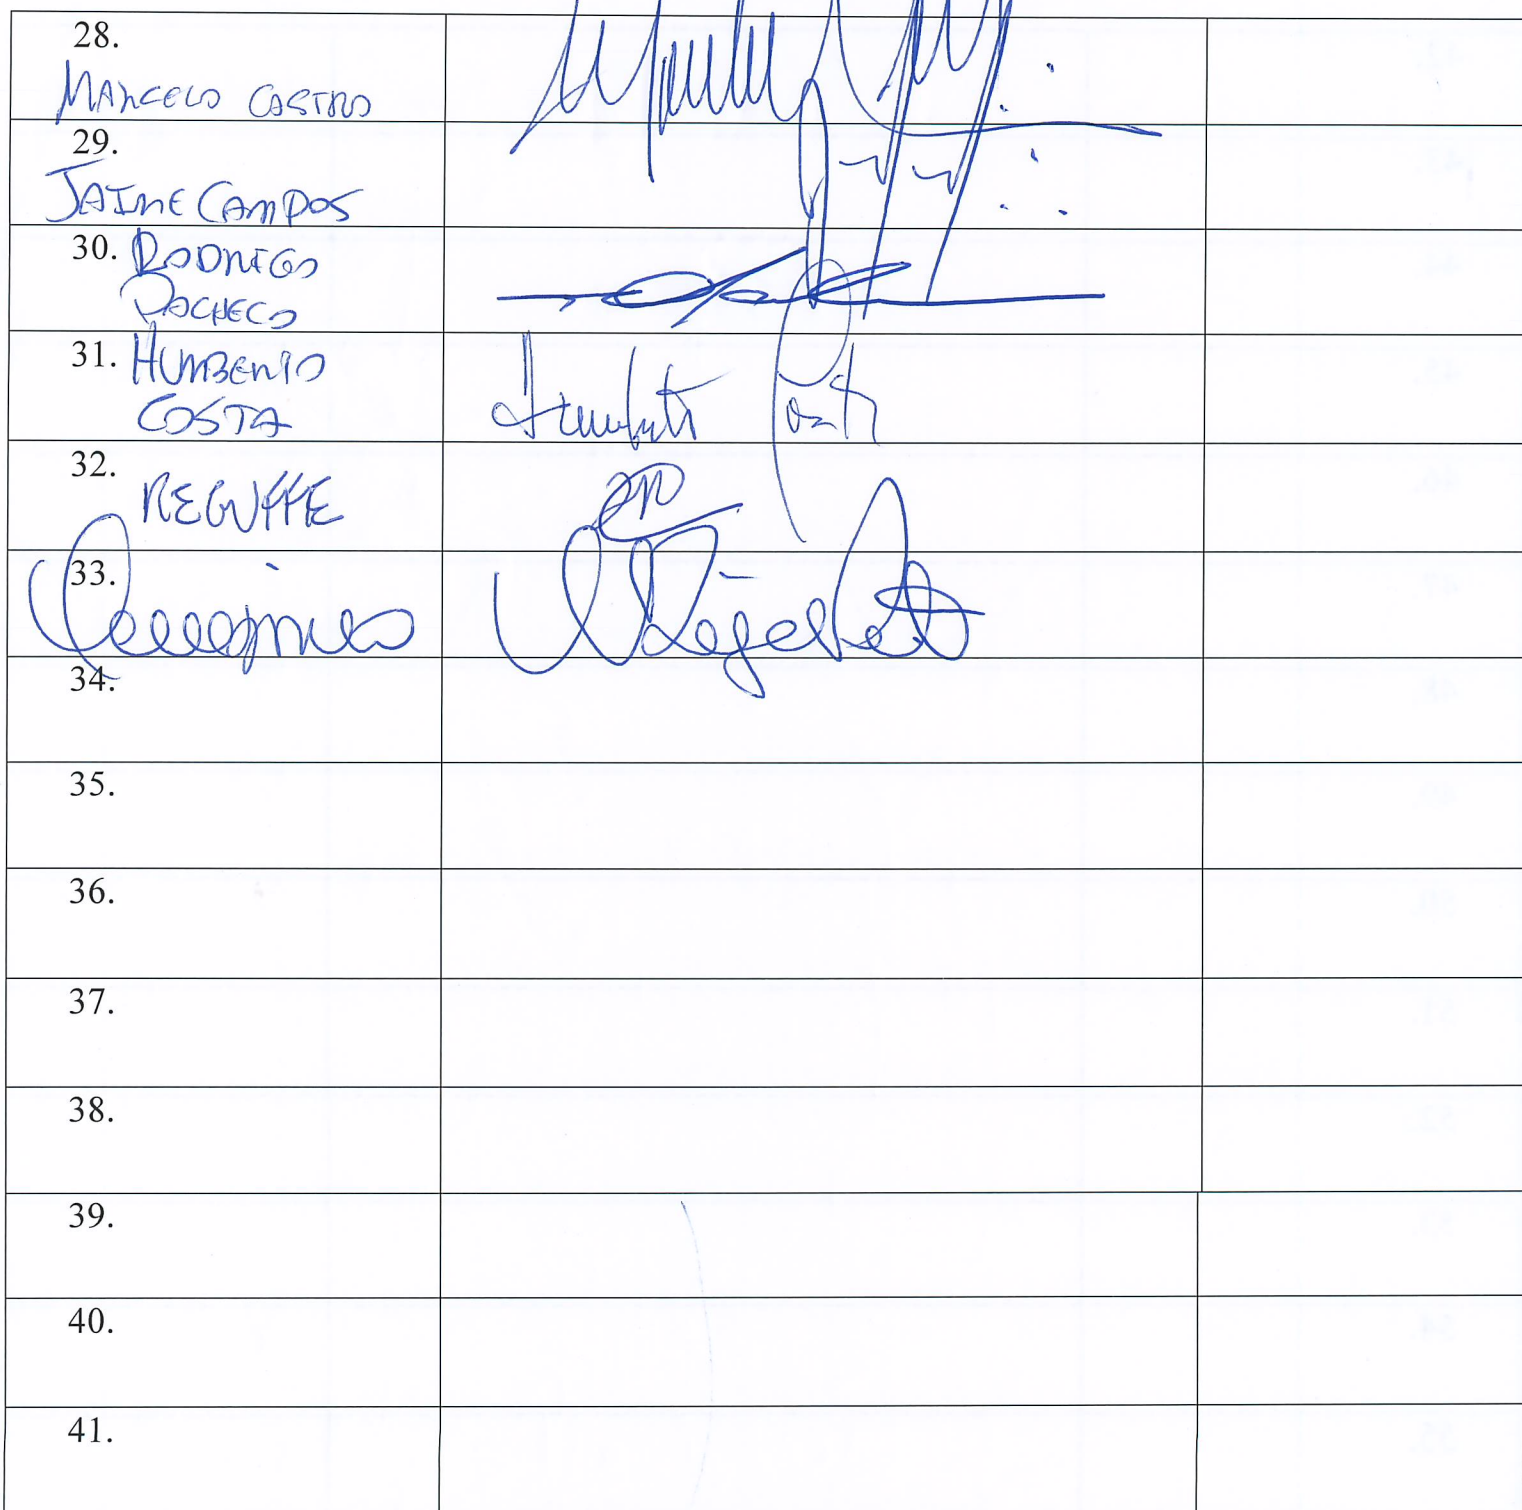 28.
MARCELO CASTRO
29.
JAIME CAMPOS
30. RODRIGO
PACHECO
31. HUMBERTO
COSTA
Humberto Costa
32.
REGUFFE
33.
34.
35.
36.
37.
38.
39.
40.
41.